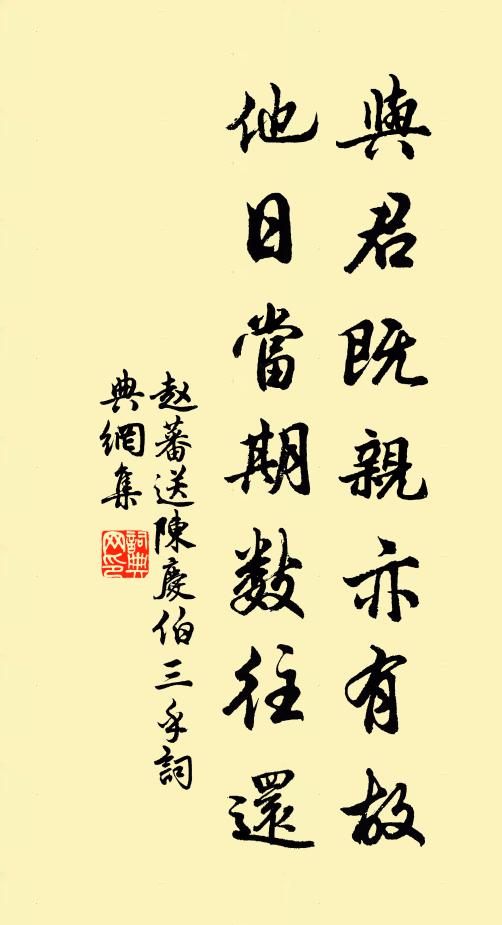 與君既親亦有故
他日當期數往還
赵蕃送陳慶伯三手詞
典網集
詞典
网印